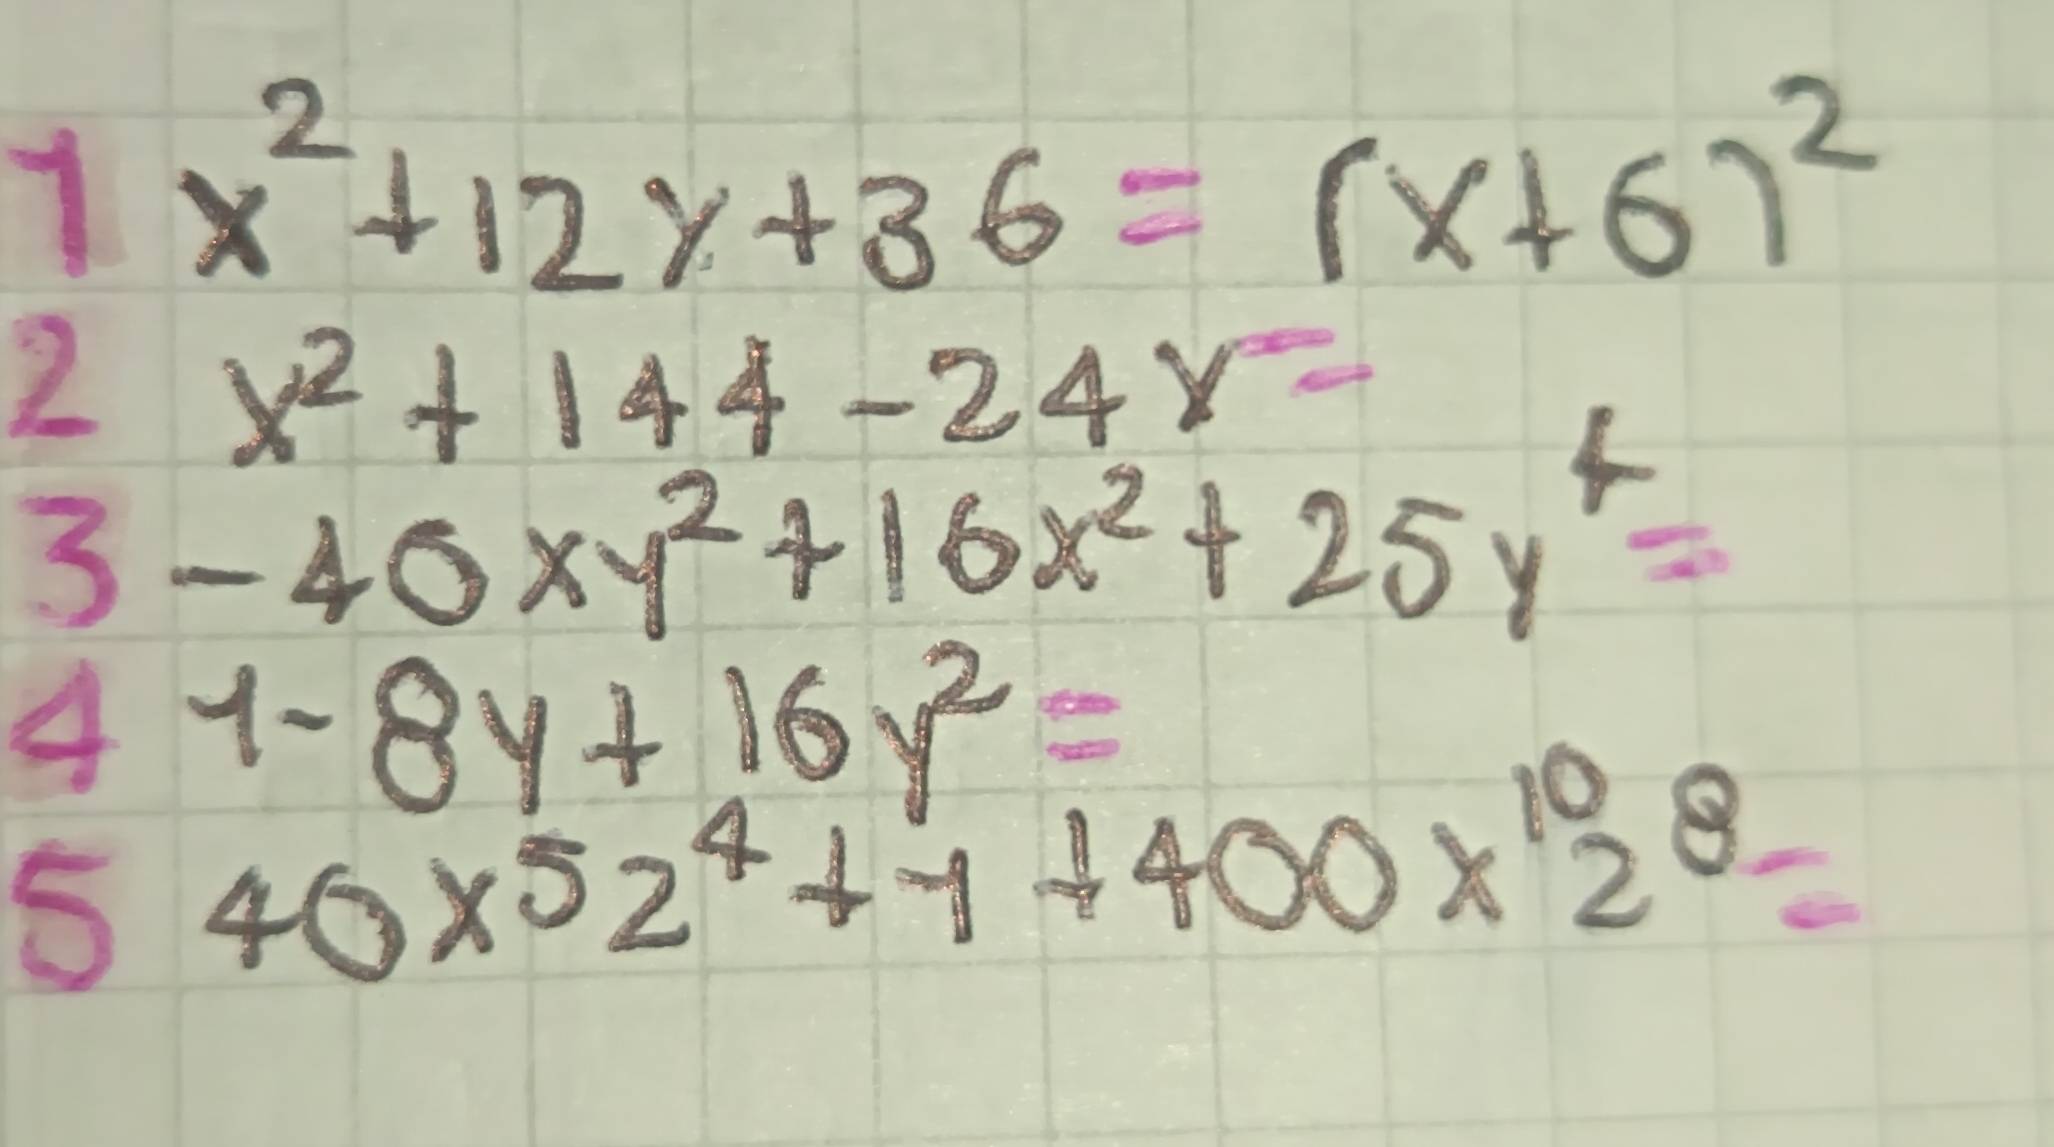 1 x²+12x+36 = (x+6)²
2 x²+144-24x =
3 -40xy²+16x²+25y⁴ =
4 1-8y+16y² =
5 40x⁵z⁴+1+400x¹⁰z⁸ =